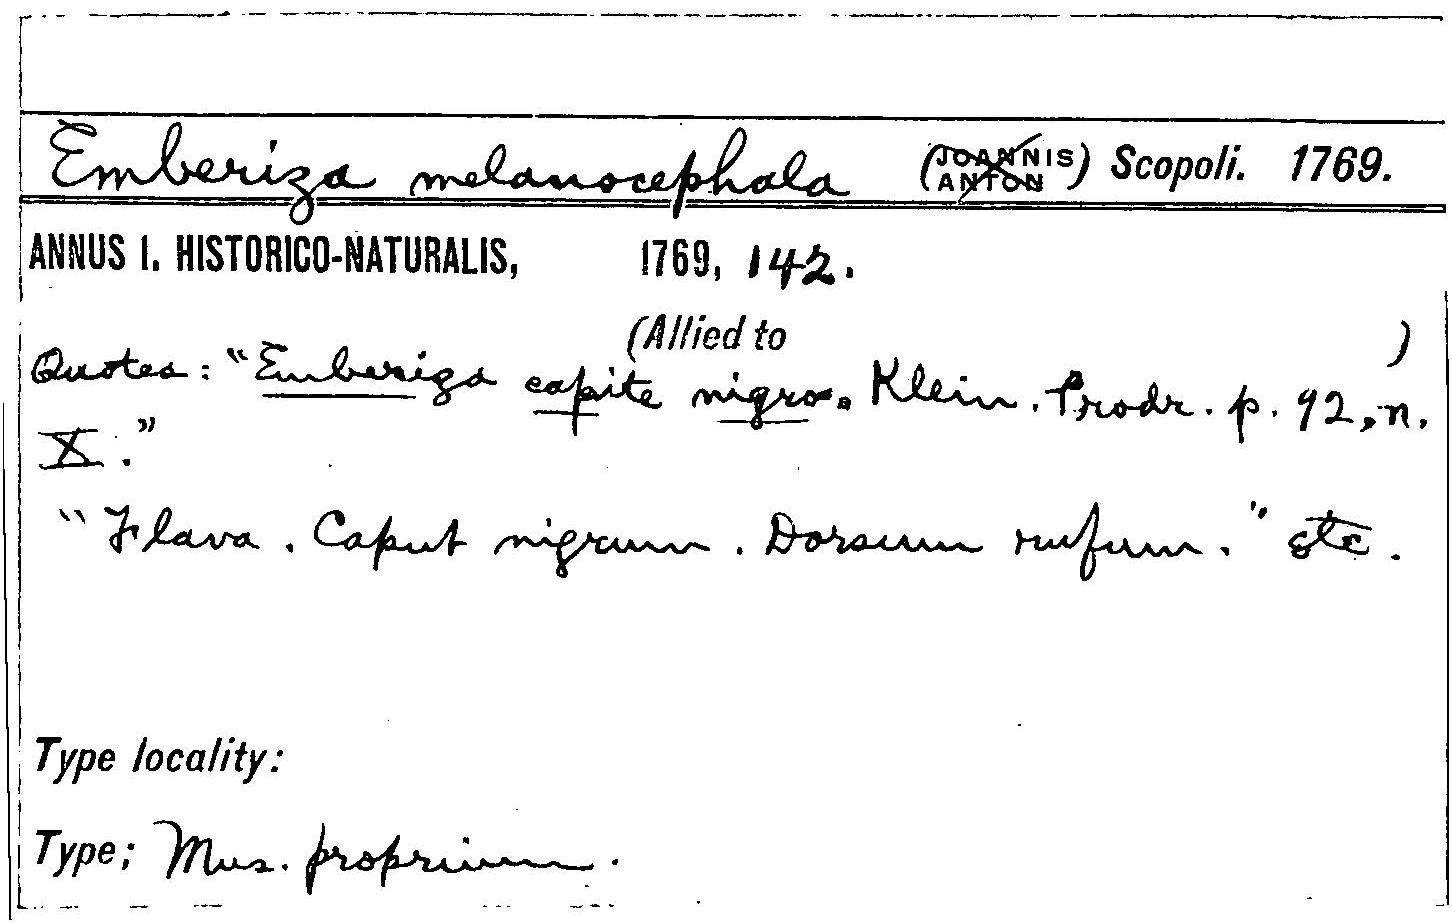 Emberiza melanocephala (JOANNIS ANTON) Scopoli. 1769.
ANNUS I. HISTORICO-NATURALIS, 1769, 142.
(Allied to )
Quotes: "Emberiza capite nigro. Klein. Prodr. p. 92, n.
X."
"Flava. Caput nigrum. Dorsum rufum." etc.
Type locality:
Type; Mus. proprium.